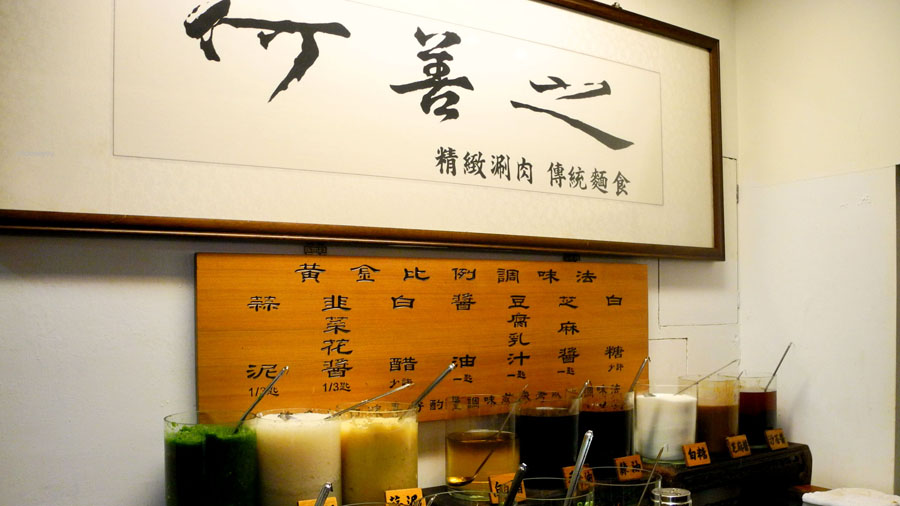 何善之
精緻涮肉 傳統麵食
黃金比例調味法
蒜泥 1/3匙
韭菜花醬 1/3匙
白醋 少許
醬油 一匙
豆腐乳汁 一匙
芝麻醬 一匙
白糖 少許
酌量調味
白糖
芝麻醬